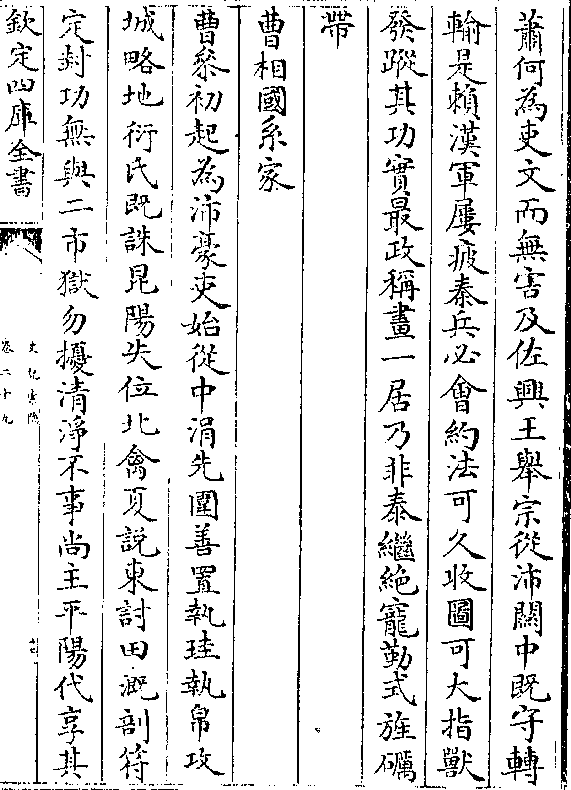 蕭何為吏文而無害及佐興王舉宗從沛關中既守轉
輸是賴漢軍屢疲秦兵必會約法可久收圖可大指獸
發蹤其功實最政稱畫一居乃非泰繼絶寵勤式旌礪
帶
曹相國系家
曹叅初起為沛豪吏始從中涓先圍善置執珪執帛攻
城略地衍氏既誅昆陽失位北禽夏說東討田溉剖符
定封功無與二市獄勿擾清淨不事尚主平陽代享其
欽定四庫全書
史記索隱
卷二十九